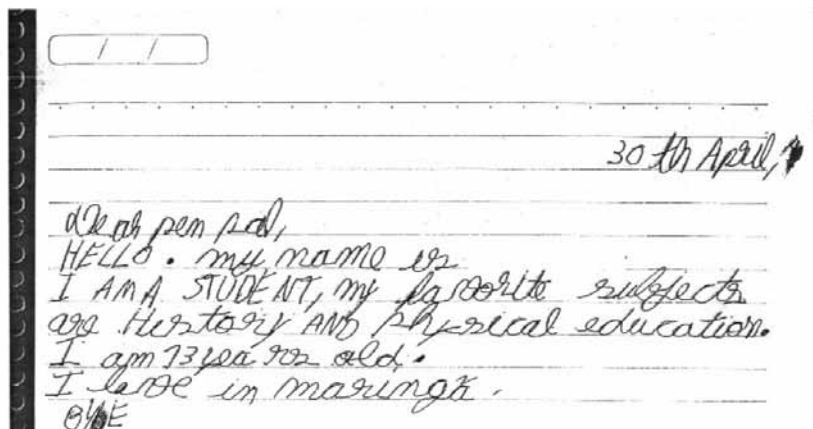 / /
30 th April,
Dear pen pal,
HELLO. my name is
I AM A STUDENT, my favorite subjects
are History AND physical education.
I am 13 years old.
I live in maringá.
BYE